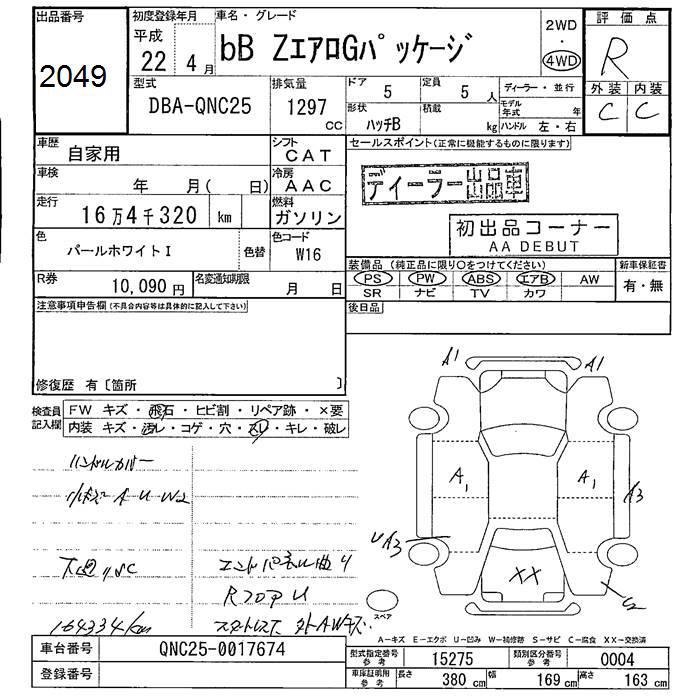 出品番号
2049
初度登録年月
平成
22年 4月
車名・グレード
bB ZエアロGパッケージ
2WD
・
4WD
評価点
R
外装 内装
C C
型式
DBA-QNC25
排気量
1297
CC
ドア
5
定員
5 人
ディーラー・並行
形状
ハッチB
積載
kg
モデル年式 年
ハンドル 左・右
車歴
自家用
シフト
CAT
車検
年 月( 日)
冷房
AAC
走行
16万4千320 km
燃料
ガソリン
色
パールホワイトI
色替
色コード
W16
R券
10,090円
名変通知期限
月 日
注意事項申告欄(不具合内容等は具体的に記入して下さい)
修復歴 有〔箇所 〕
セールスポイント(正常に機能するものに限ります)
ディーラー出品車
初出品コーナー
AA DEBUT
装備品(純正品に限り○をつけてください)
PS PW ABS エアB AW
SR ナビ TV カワ
新車保証書
有・無
後日品
検査員記入欄
FW キズ・飛石・ヒビ割・リペア跡・×要
内装 キズ・汚レ・コゲ・穴・スレ・キレ・破レ
ハンドルカバー
下廻りSC
エンドパネル曲り
RフロアU
164334km
A1 A1
A1 A1 A3
UA3
XX
S2
スペア
A-キズ E-エクボ U-凹み W-補修跡 S-サビ C-腐食 XX-交換済
車台番号
QNC25-0017674
登録番号
型式指定番号
参考
15275
類別区分番号
参考
0004
車庫証明用
参考
長さ 380 cm 幅 169 cm 高さ 163 cm